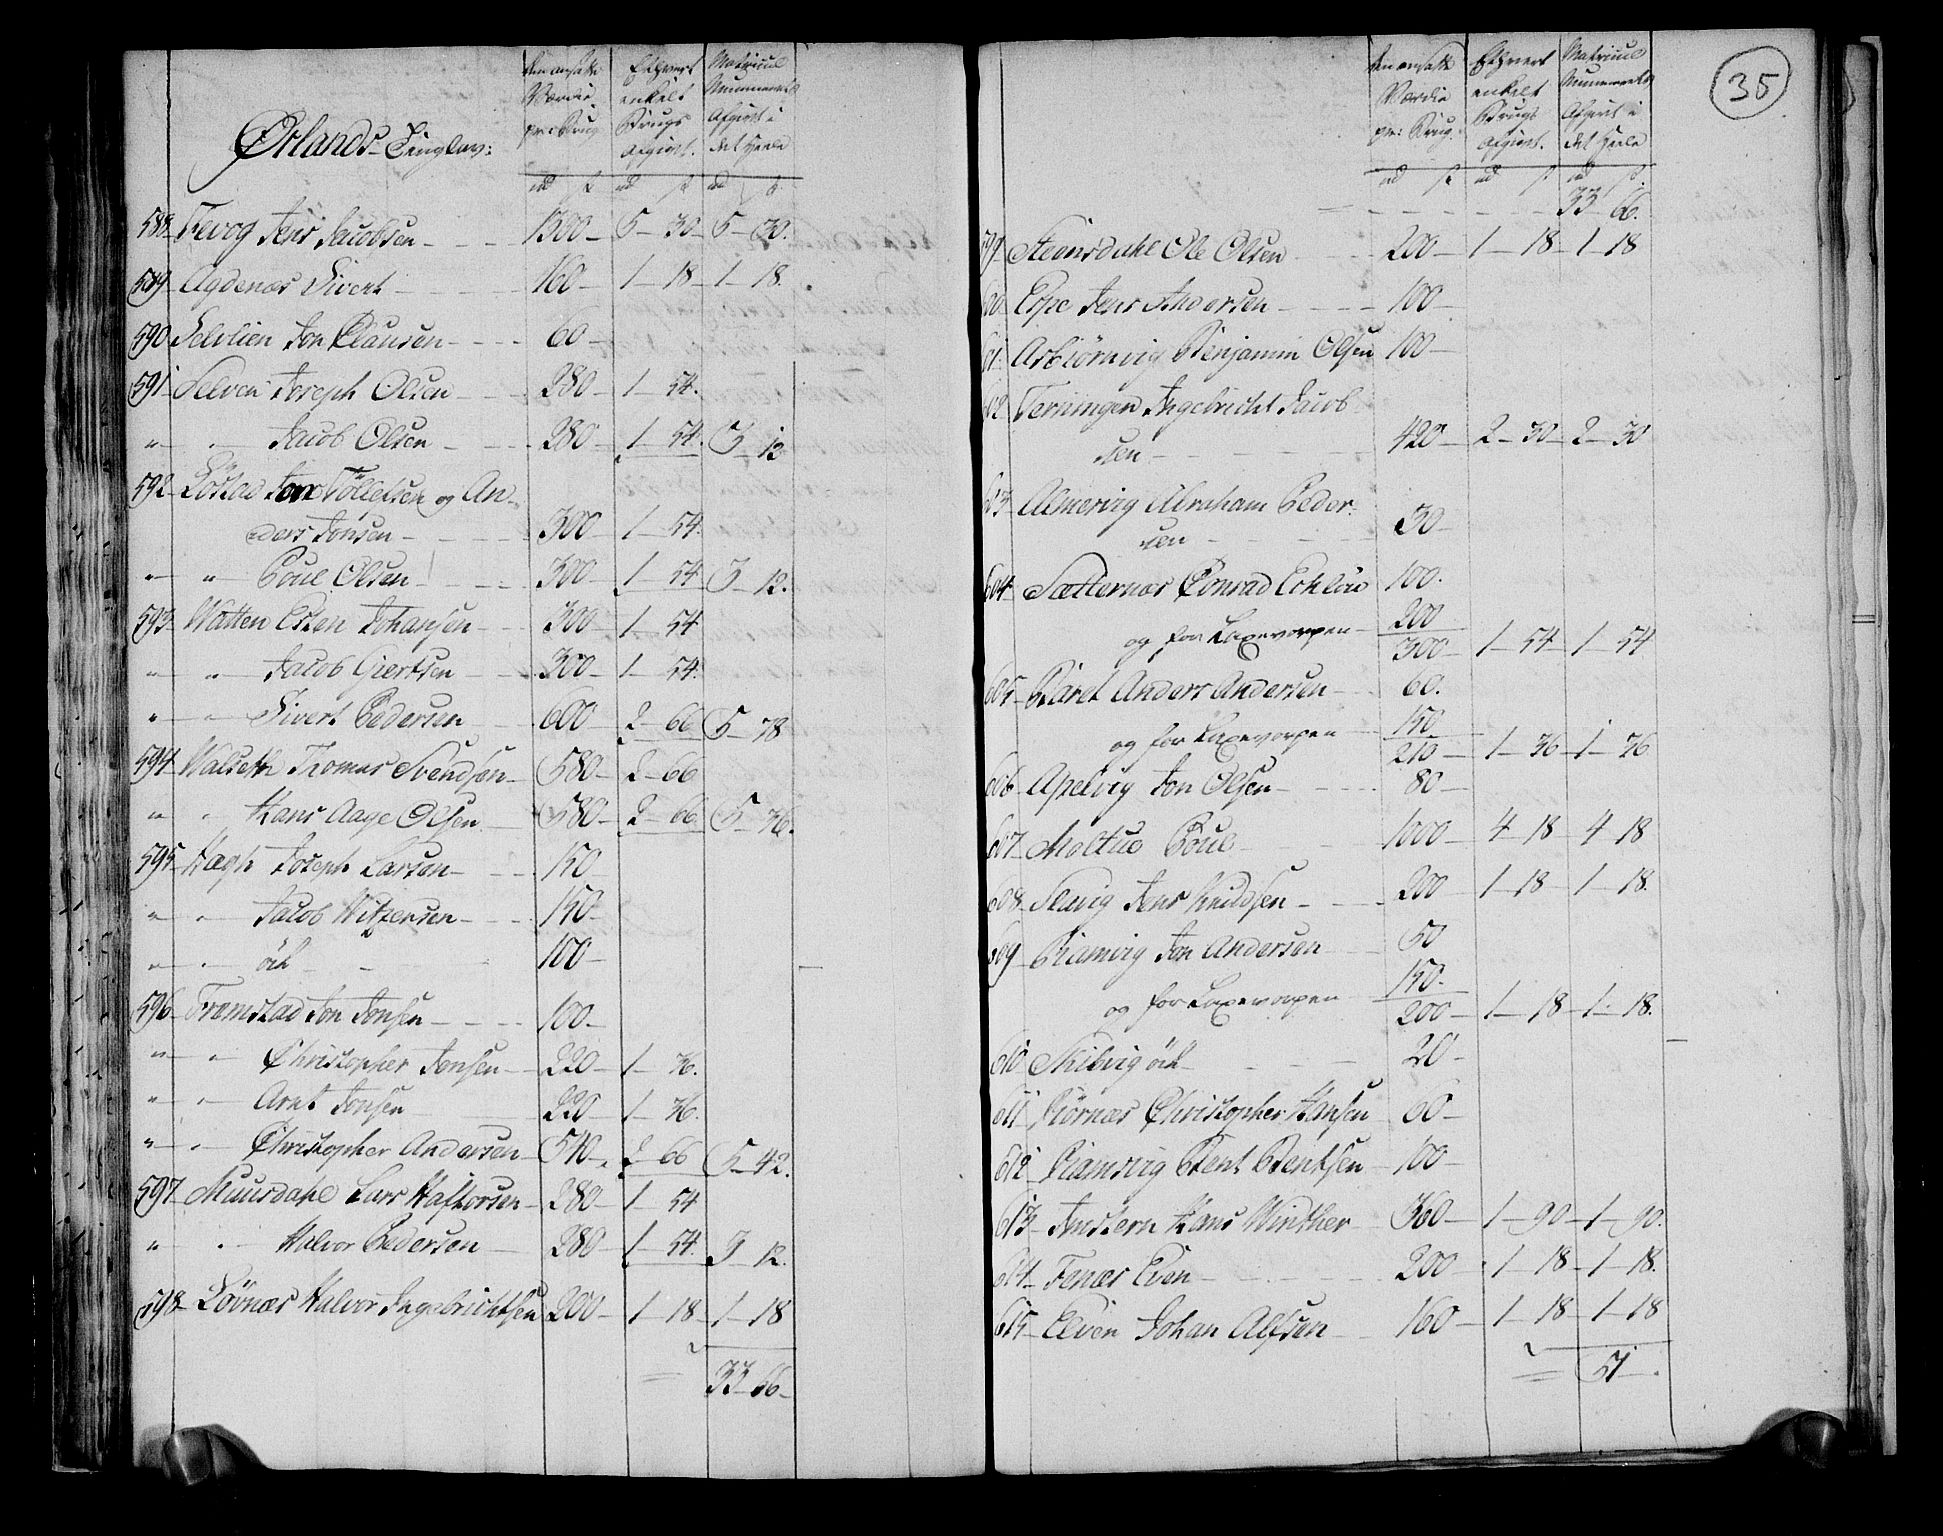 Ørlands Tinglav:
den ansatte Værdie pr: Brug
Ethvert enkelt Brugs Afgivt.
Matricul Nummerets Afgivt i det Heele
rd ß rd ß rd ß
588 Fevog Jens Jacobsen 1300 5 30 5 30.
589 Agdenæs Sivert 160 1 18 1 18.
590 Selvlien Jon Clausen 60
591 Selven Joseph Olsen 280 1 54.
" " Jacob Olsen 280 1 54. 3 12
592 Løstad Jon Tollefsen og An-
ders Jonsen 300 1 54.
" " Poul Olsen 300 1 54 3 12.
593 Watten Esten Johansen 300 1 54
" " Jacob Giertsen 300 1 54.
" " Sivert Pedersen 600 2 66 5 78
594 Walseth Thomas Svendsen 580 2 66
" " Hans Aage Olsen 580 2 66 5 36.
595 Hægh Joseph Larsen 150
" " Jacob Nitzersen 150
" " öde 100
596 Fremstad Jon Jonsen 100
" " Christopher Jonsen 220 1 36.
" " Arnt Jonsen 220 1 36.
" " Christopher Andersen 540 2 66 5 42.
597 Muursdahl Lars Haftorsen 280 1 54
" " Halvor Pedersen 280 1 54. 3 12.
598 Lövnæs Halvor Ingebrichtsen 200 1 18 1 18
33 66
35
den ansatte Værdie pr: Brug.
Ethvert enkelt Brugs Afgivt.
Matricul Nummerets Afgivt i det Heele
rd ß rd ß rd ß
33 66.
599 Steensdahl Ole Olsen 200 1 18 1 18
600 Espe Jens Andersen 100
601. Asbiörnvig Benjamin Olsen 100
602 Terningen Ingebricht Jacob
sen 420 2 30 2 30
603 Almervig Abraham Peder-
sen 30
604 Sætternæs Conrad Erhlöu 100.
og for Laxevorpen 200
300 1 54 1 54
605 Baret Anders Andersen 60.
og for Laxevorpen 150.
210 1 36 1 36
606 Apelvig Jon Olsen 80
607 Moltue Poul 1000 4 18 4 18
608 Slavig Jens Knudsen 200 1 18 1 18.
609 Ramvig Jon Andersen 50
og for Laxevorpen 150.
200 1 18 1 18.
610 Skilvig öde 20
611 Biörnæs Christopher Hansen 60
612 Ramsvig Bent Bentsen 100
613 Imstern Hans Winther 360 1 90 1 90.
614 Fenæs Even 200 1 18 1 18.
615 Elven Johan Alfsen 160 1 18 1 18
51